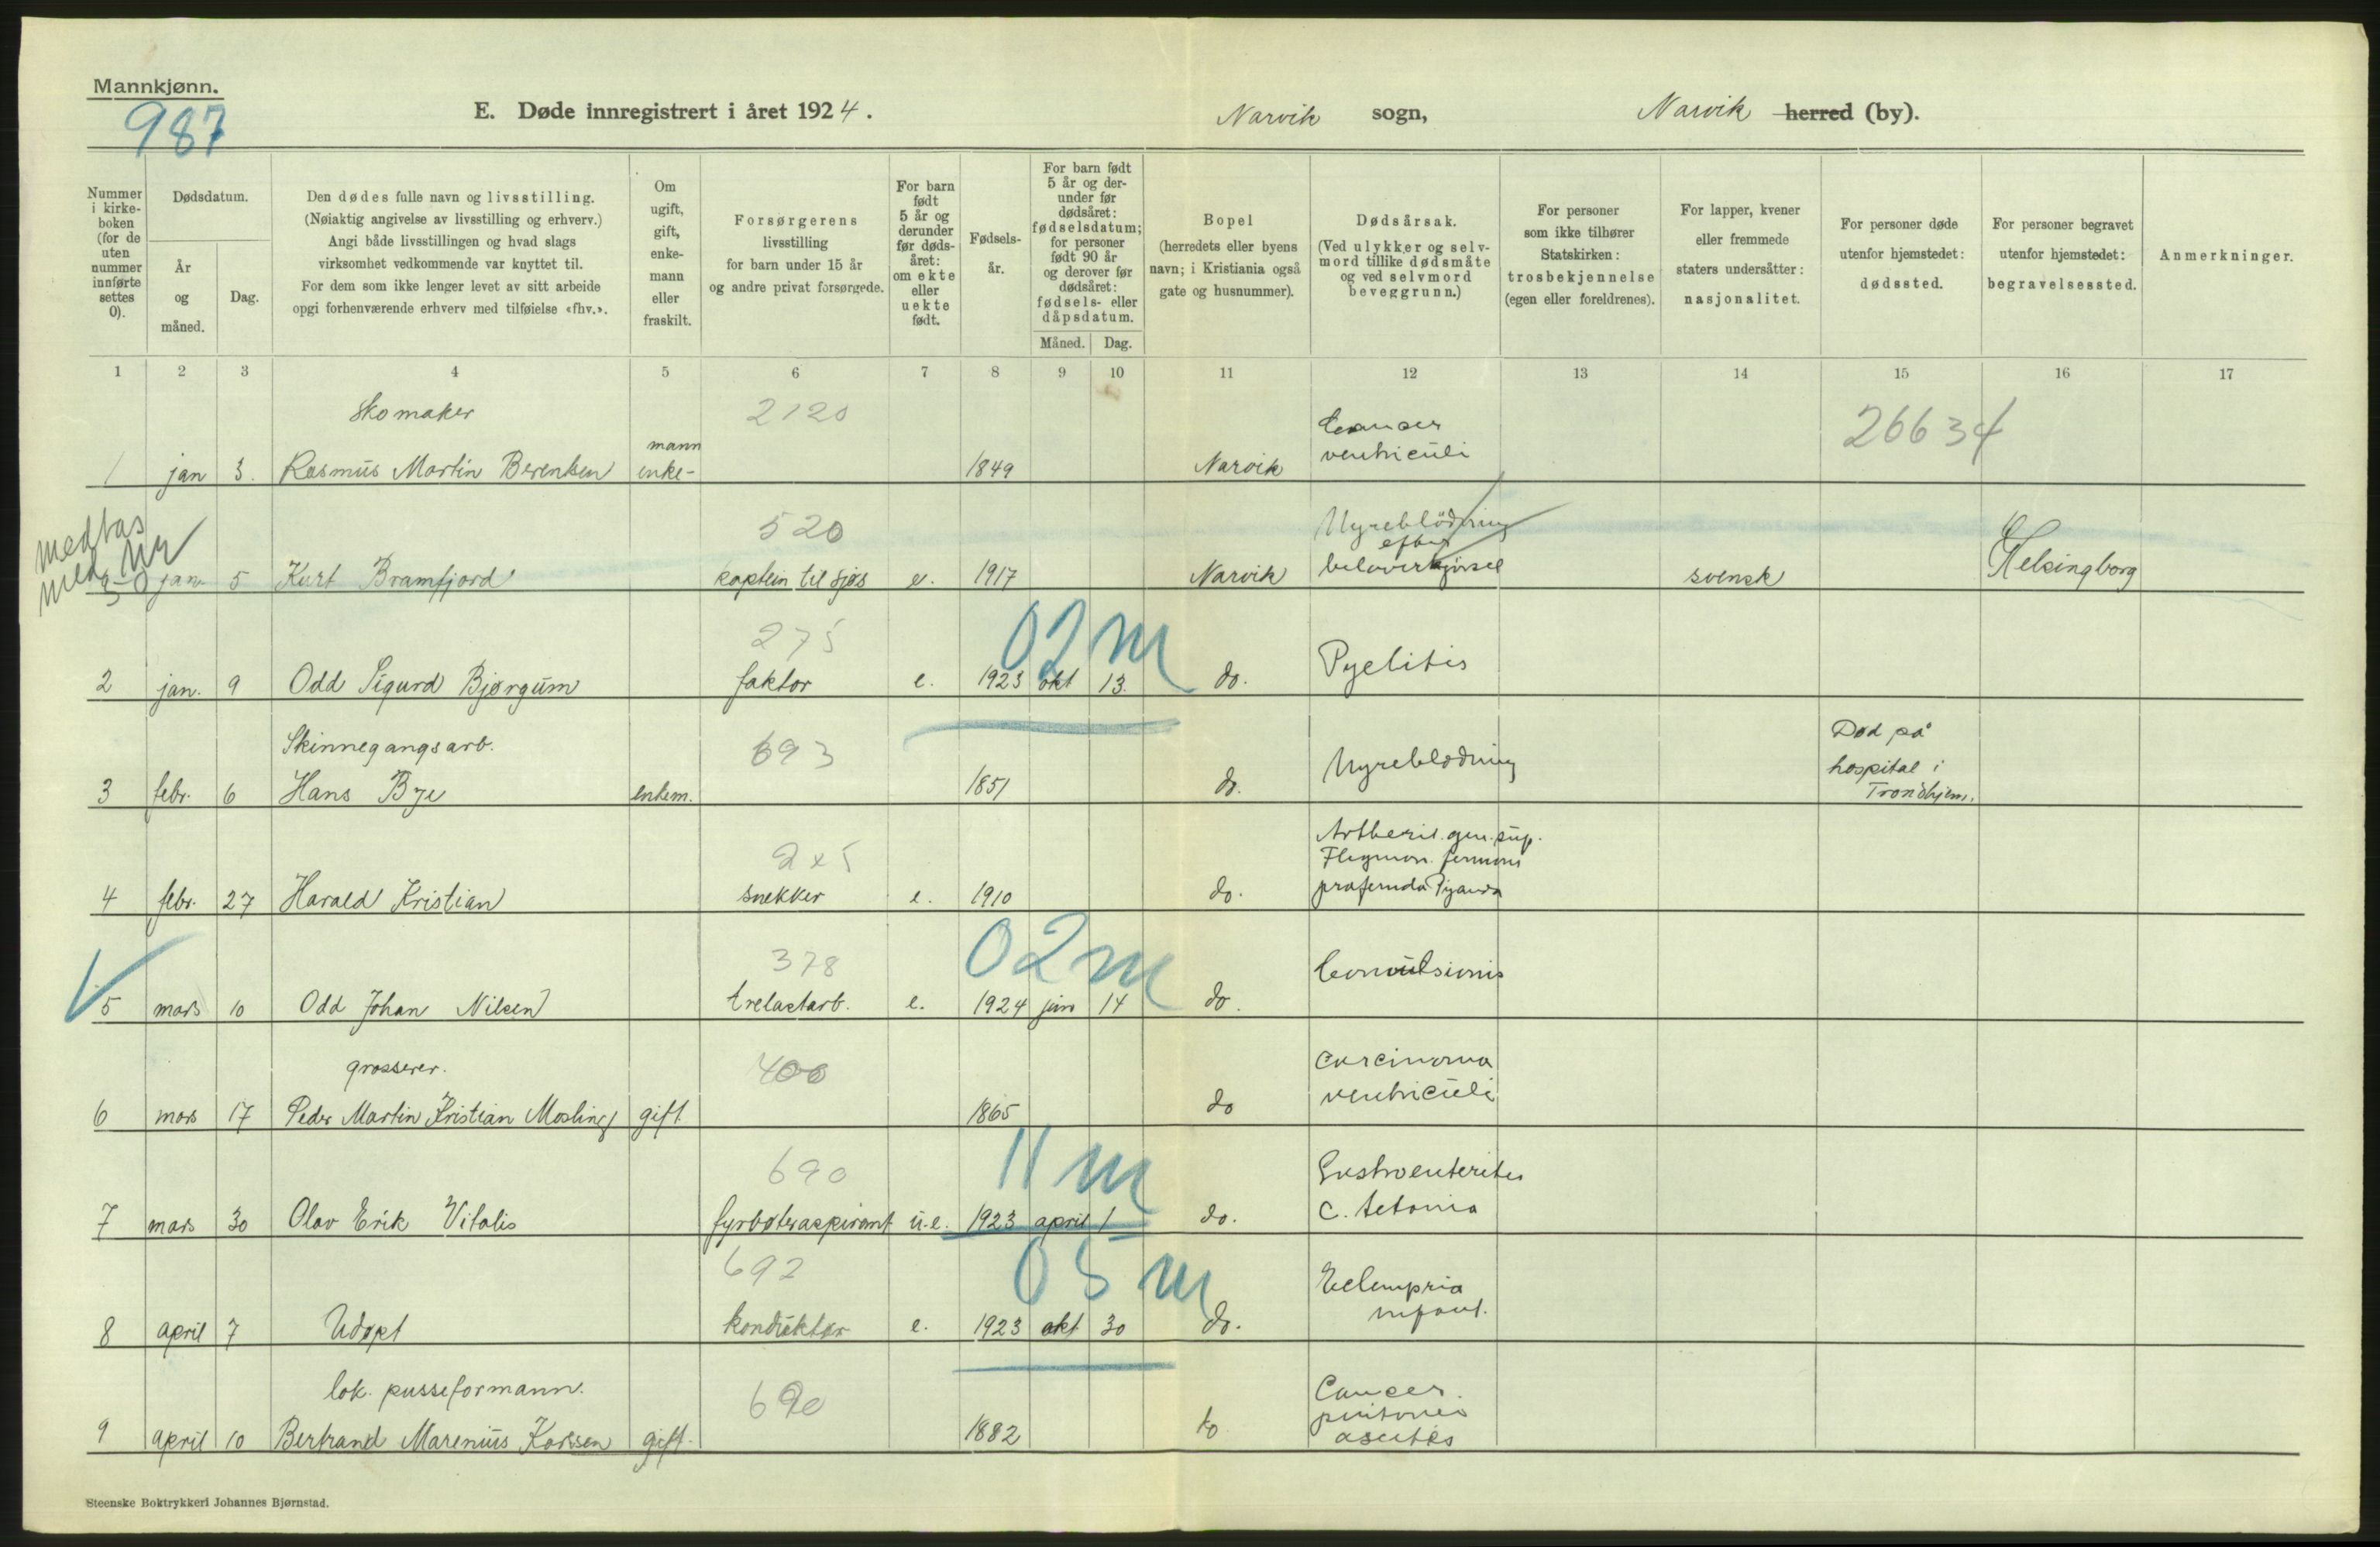 Mannkjønn.
987
E. Døde innregistrert i året 1924.
Narvik sogn,
Narvik herred (by).
Nummer i kirkeboken (for de uten nummer innførte settes 0).
Dødsdatum.
År og måned.
Dag.
Den dødes fulle navn og livsstilling.
(Nøiaktig angivelse av livsstilling og erhverv.)
Angi både livsstillingen og hvad slags
virksomhet vedkommende var knyttet til.
For dem som ikke lenger levet av sitt arbeide
opgi forhenværende erhverv med tilføielse «fhv.».
Om ugift, gift, enkemann eller fraskilt.
Forsørgerens
livsstilling
for barn under 15 år
og andre privat forsørgede.
For barn født 5 år og derunder før dødsåret: om ekte eller uekte født.
Fødselsår.
For barn født 5 år og derunder før dødsåret: fødselsdatum; for personer født 90 år og derover før dødsåret: fødsels- eller dåpsdatum.
Måned. Dag.
Bopel
(herredets eller byens
navn; i Kristiania også
gate og husnummer).
Dødsårsak.
(Ved ulykker og selvmord tillike dødsmåte
og ved selvmord
beveggrunn.)
For personer
som ikke tilhører
Statskirken:
trosbekjennelse
(egen eller foreldrenes).
For lapper, kvener
eller fremmede
staters undersåtter:
nasjonalitet.
For personer døde
utenfor hjemstedet:
dødssted.
For personer begravet
utenfor hjemstedet:
begravelsessted.
Anmerkninger.
1 2 3 4 5 6 7 8 9 10 11 12 13 14 15 16 17
Skomaker 2120 Cancer 26634
1 jan 3. Rasmus Martin Berentsen enke-mann 1849 Narvik ventriculi
medtas 520 Nyreblödning
med efter
0 jan. 5 Kurt Bramfjord kaptein til sjøs e. 1917 Narvik biloverkjørsel svensk Helsingborg
275 02 m
2 jan. 9 Odd Sigurd Bjørgum faktor e. 1923 okt 13. do. Pyelitis
Skinnegangsarb. 693 Død på
hospital i
3 febr. 6 Hans Bye enkem. 1851 do. Nyreblødning Trondhjem.
Flegmon.
4 febr. 27 Harald Kristian snekker e. 1910 do.
378 02 m
5 mars 10 Odd Johan Nilsen trelastarb. e. 1924 jan 14 do. Convulsionis
grosserer. 400 Carcinoma
6 mars 17 Peder Martin Kristian Mosling gift 1865 do ventriculi
690 11 m Gastroenterites
7 mars 30 Olav Erik Vitalis fyrbøteraspirant u.e. 1923 april 1 do. c. tetania
692 05 m Eclampsia
8 april 7 Udøpt konduktør e. 1923 okt 30 do. infant.
lok. pusseformann. 690 Cancer.
9 april 10 Bertrand Marenius Karlsen gift. 1882 do
Steenske Boktrykkeri Johannes Bjørnstad.